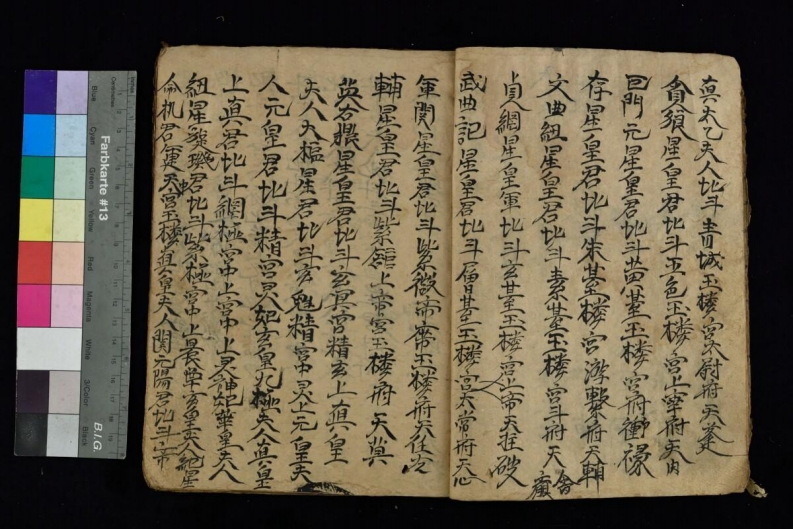 真太乙夫人北斗青城玉楼宮太尉府天蓬
貪狼星皇君北斗五色玉楼宮上宰府天内
巨門元星皇君北斗黄䑓玉楼宮府衝祿
存星皇君北斗朱䑓楼宮游擊府天輔
文曲紐星皇君北斗素䑓玉楼宮斗府天
貞綱星皇軍北斗玄䑓玉楼宮上帝天任破
武曲記星皇君北斗䑓玉楼宮太常府天心
軍関星皇君北斗紫微帝玉楼府天任
輔星皇君北斗紫上帝宮玉楼府天
星皇君北斗玄冥宮精玄上真皇
夫人天樞星君北斗玄魁精宮中灵上元皇夫
人元皇君北斗精宮灵妃玄皇九極夫人真皇
上真君北斗綱極宮中上宮中上灵神妃華皇夫人
紐星璇璣君北斗紫極宮中上晨華玄皇夫人紀星
命机君運天宮玉楼真皇夫人関元陽君北斗帝
Farbkarte #13
Blue
Cyan
Green
Yellow
Red
Magenta
White
3/Color
Black
B.I.G.
Centimetres